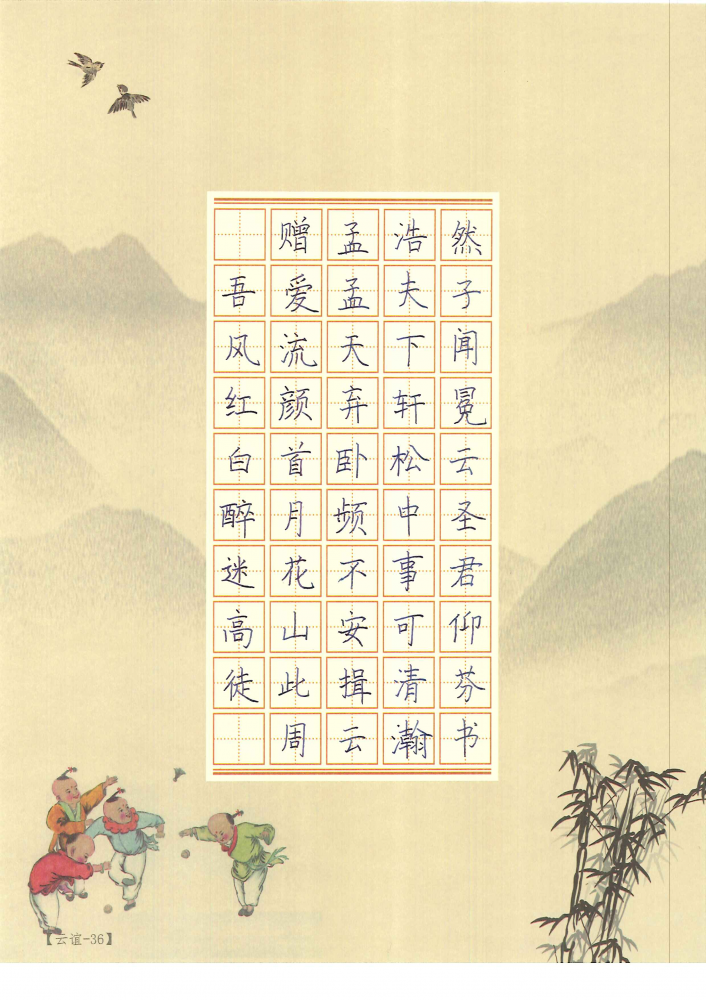 赠孟浩然
吾爱孟夫子
风流天下闻
红颜弃轩冕
白首卧松云
醉月频中圣
迷花不事君
高山安可仰
徒此揖清芬
周云瀚书
【云谊-36】